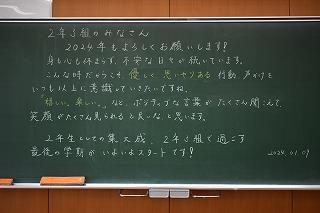 2年5組のみなさん
2024年もよろしくお願いします!
身も心も休まらず、不安な日々が続いています。
こんな時だからこそ、優しく、思いやりある 行動、声かけを
いつも以上に意識していきたいですね。
「嬉しい、楽しい。」など、ポジティブな言葉が たくさん聞こえて、
笑顔がたくさん見られると良いな、と思います。
2年生としての集大成、2年5組で過ごす
最後の学期が いよいよスタートです!
2024.01.09